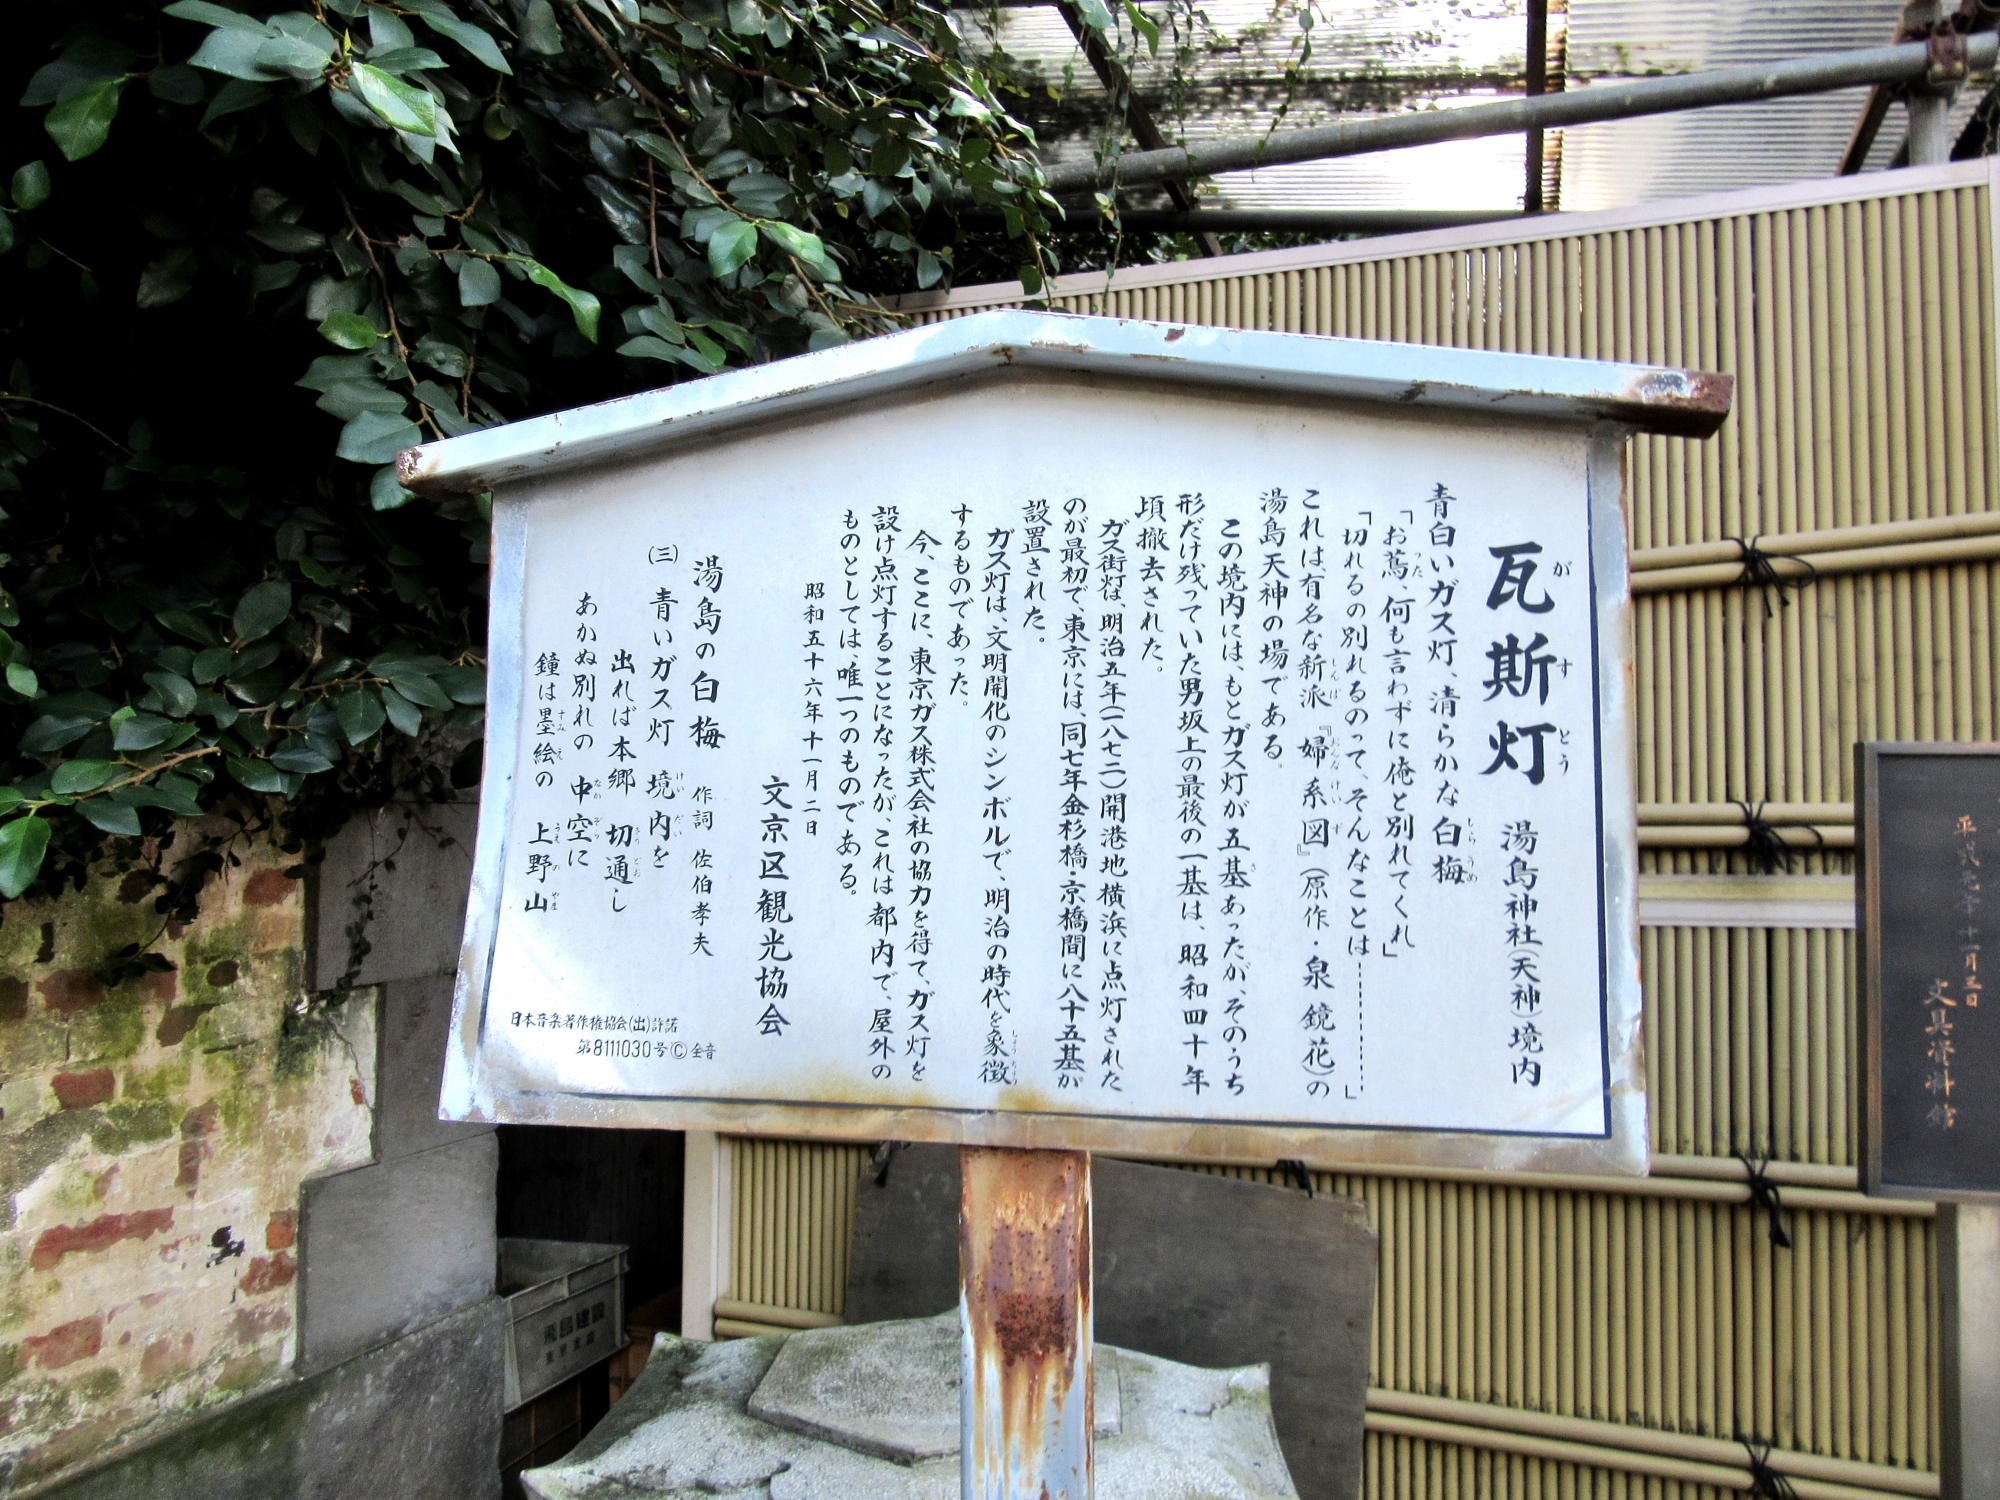 瓦斯灯 湯島神社(天神)境内
青白いガス灯、清らかな白梅
「お蔦、何も言わずに俺と別れてくれ」
「切れるの別れるのって、そんなことは………」
これは有名な新派『婦系図』(原作・泉鏡花)の
湯島天神の場である。
この境内には、もとガス灯が五基あったが、そのうち
形だけ残っていた男坂上の最後の一基は、昭和四十年
頃撤去された。
ガス街灯は、明治五年(一八七二)開港地横浜に点灯された
のが最初で、東京には、同七年金杉橋・京橋間に八十五基が
設置された。
ガス灯は、文明開化のシンボルで、明治の時代を象徴
するものであった。
今、ここに、東京ガス株式会社の協力を得て、ガス灯を
設け点灯することになったが、これは都内で、屋外の
ものとしては、唯一つのものである。
昭和五十六年十一月二日
文京区観光協会
湯島の白梅 作詞 佐伯孝夫
(三) 青いガス灯 境内を
出れば本郷 切通し
あかぬ別れの 中空に
鐘は墨絵の 上野山
日本音楽著作権協会(出)許諾
第8111030号Ⓒ全音
平成元年十一月三日
文具資料館
飛島建設